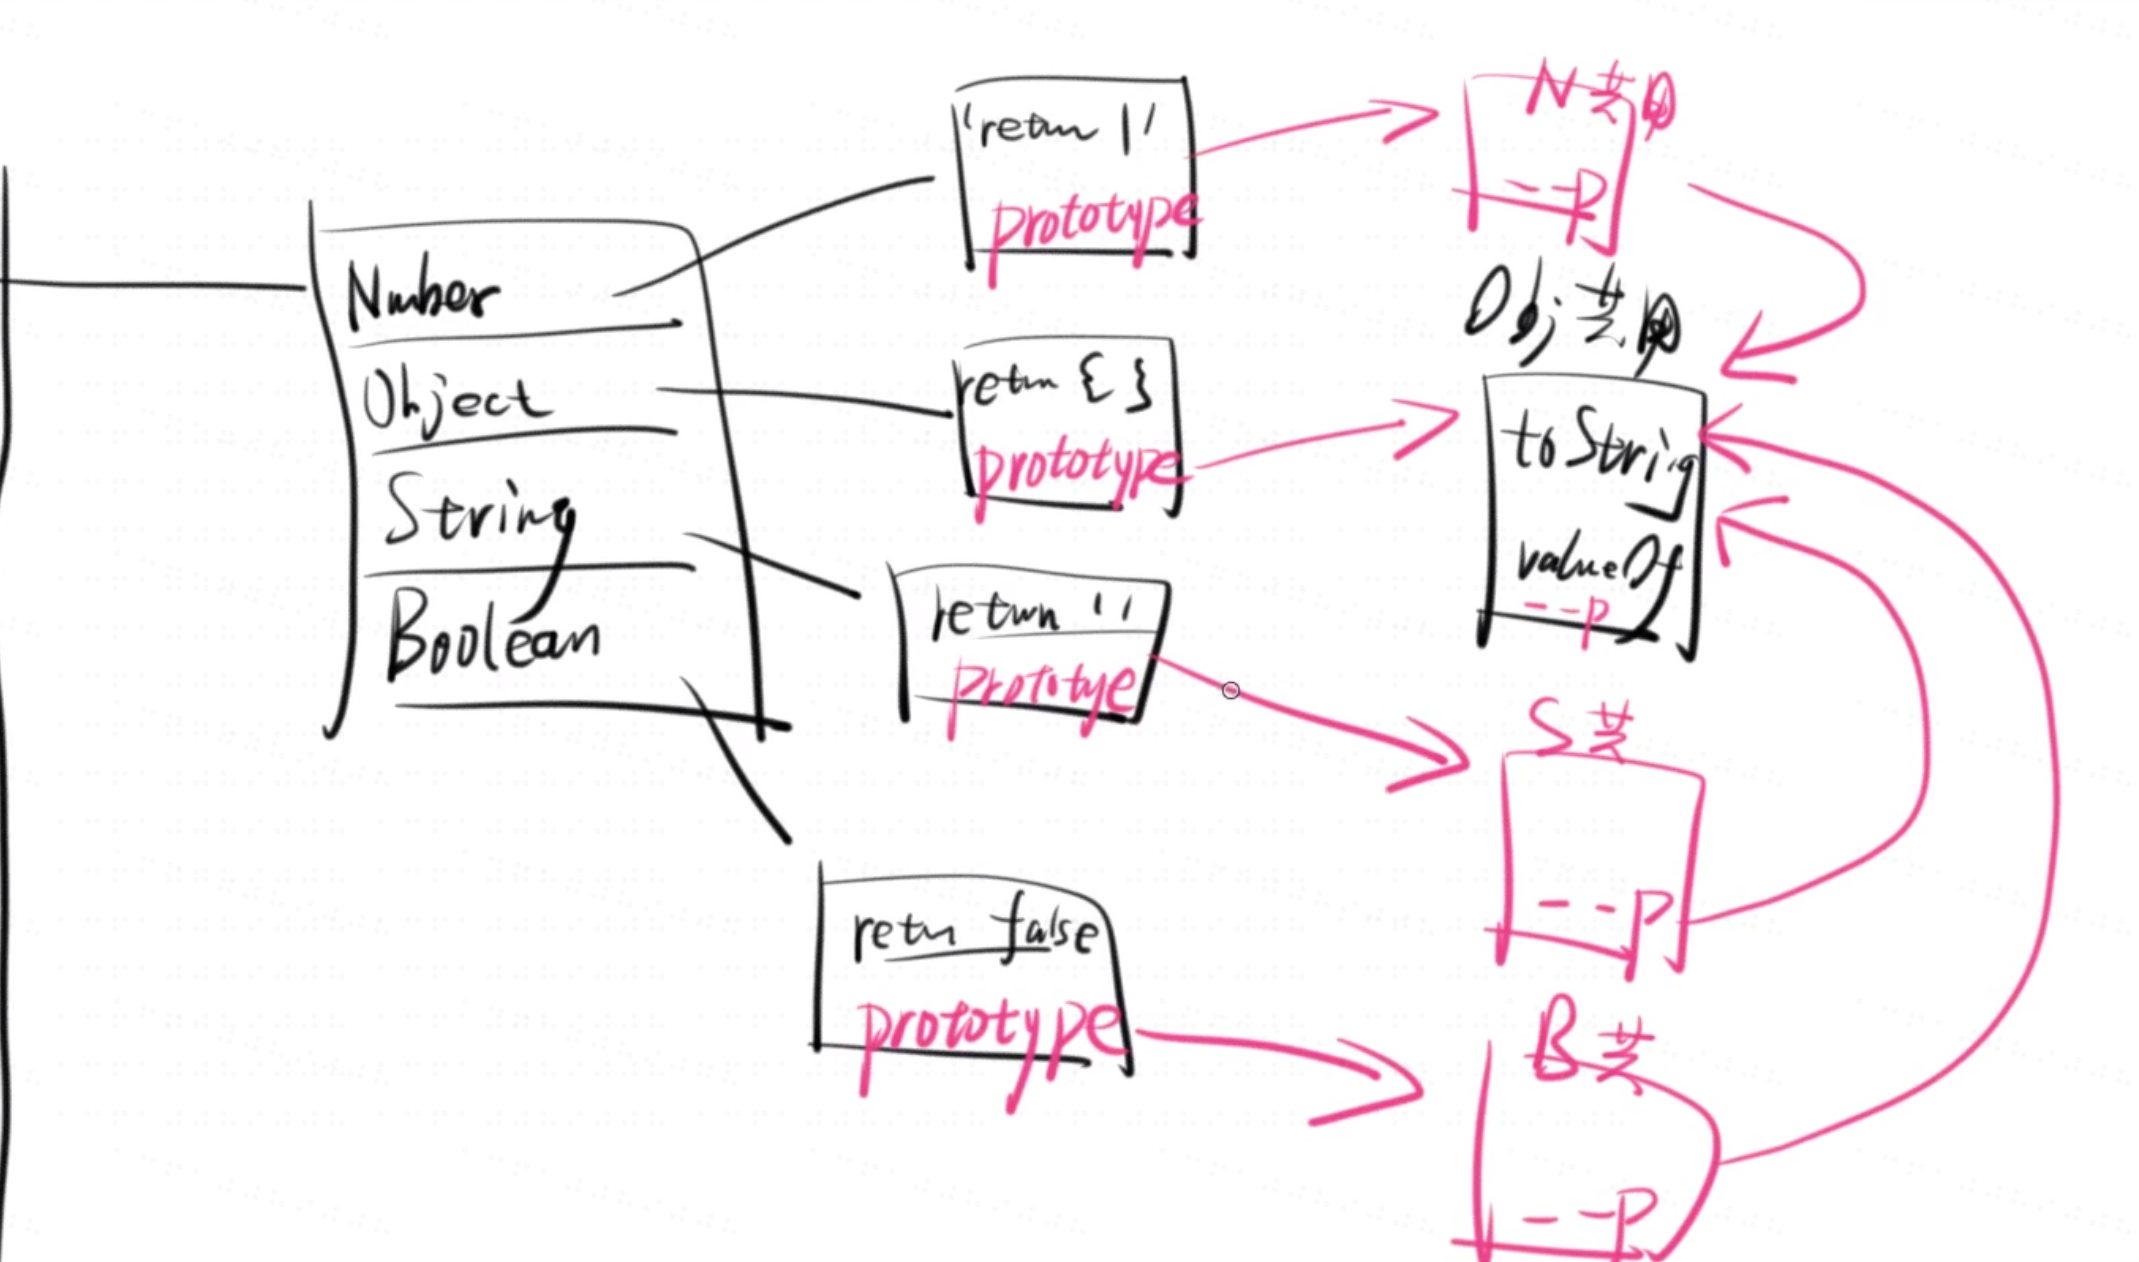 Number
Object
String
Boolean
'return 1'
prototype
return { }
prototype
return ' '
prototye
return false
prototype
N共用
--p
Obj共用
toString
valueOf
--p
S共
--p
B共
--p